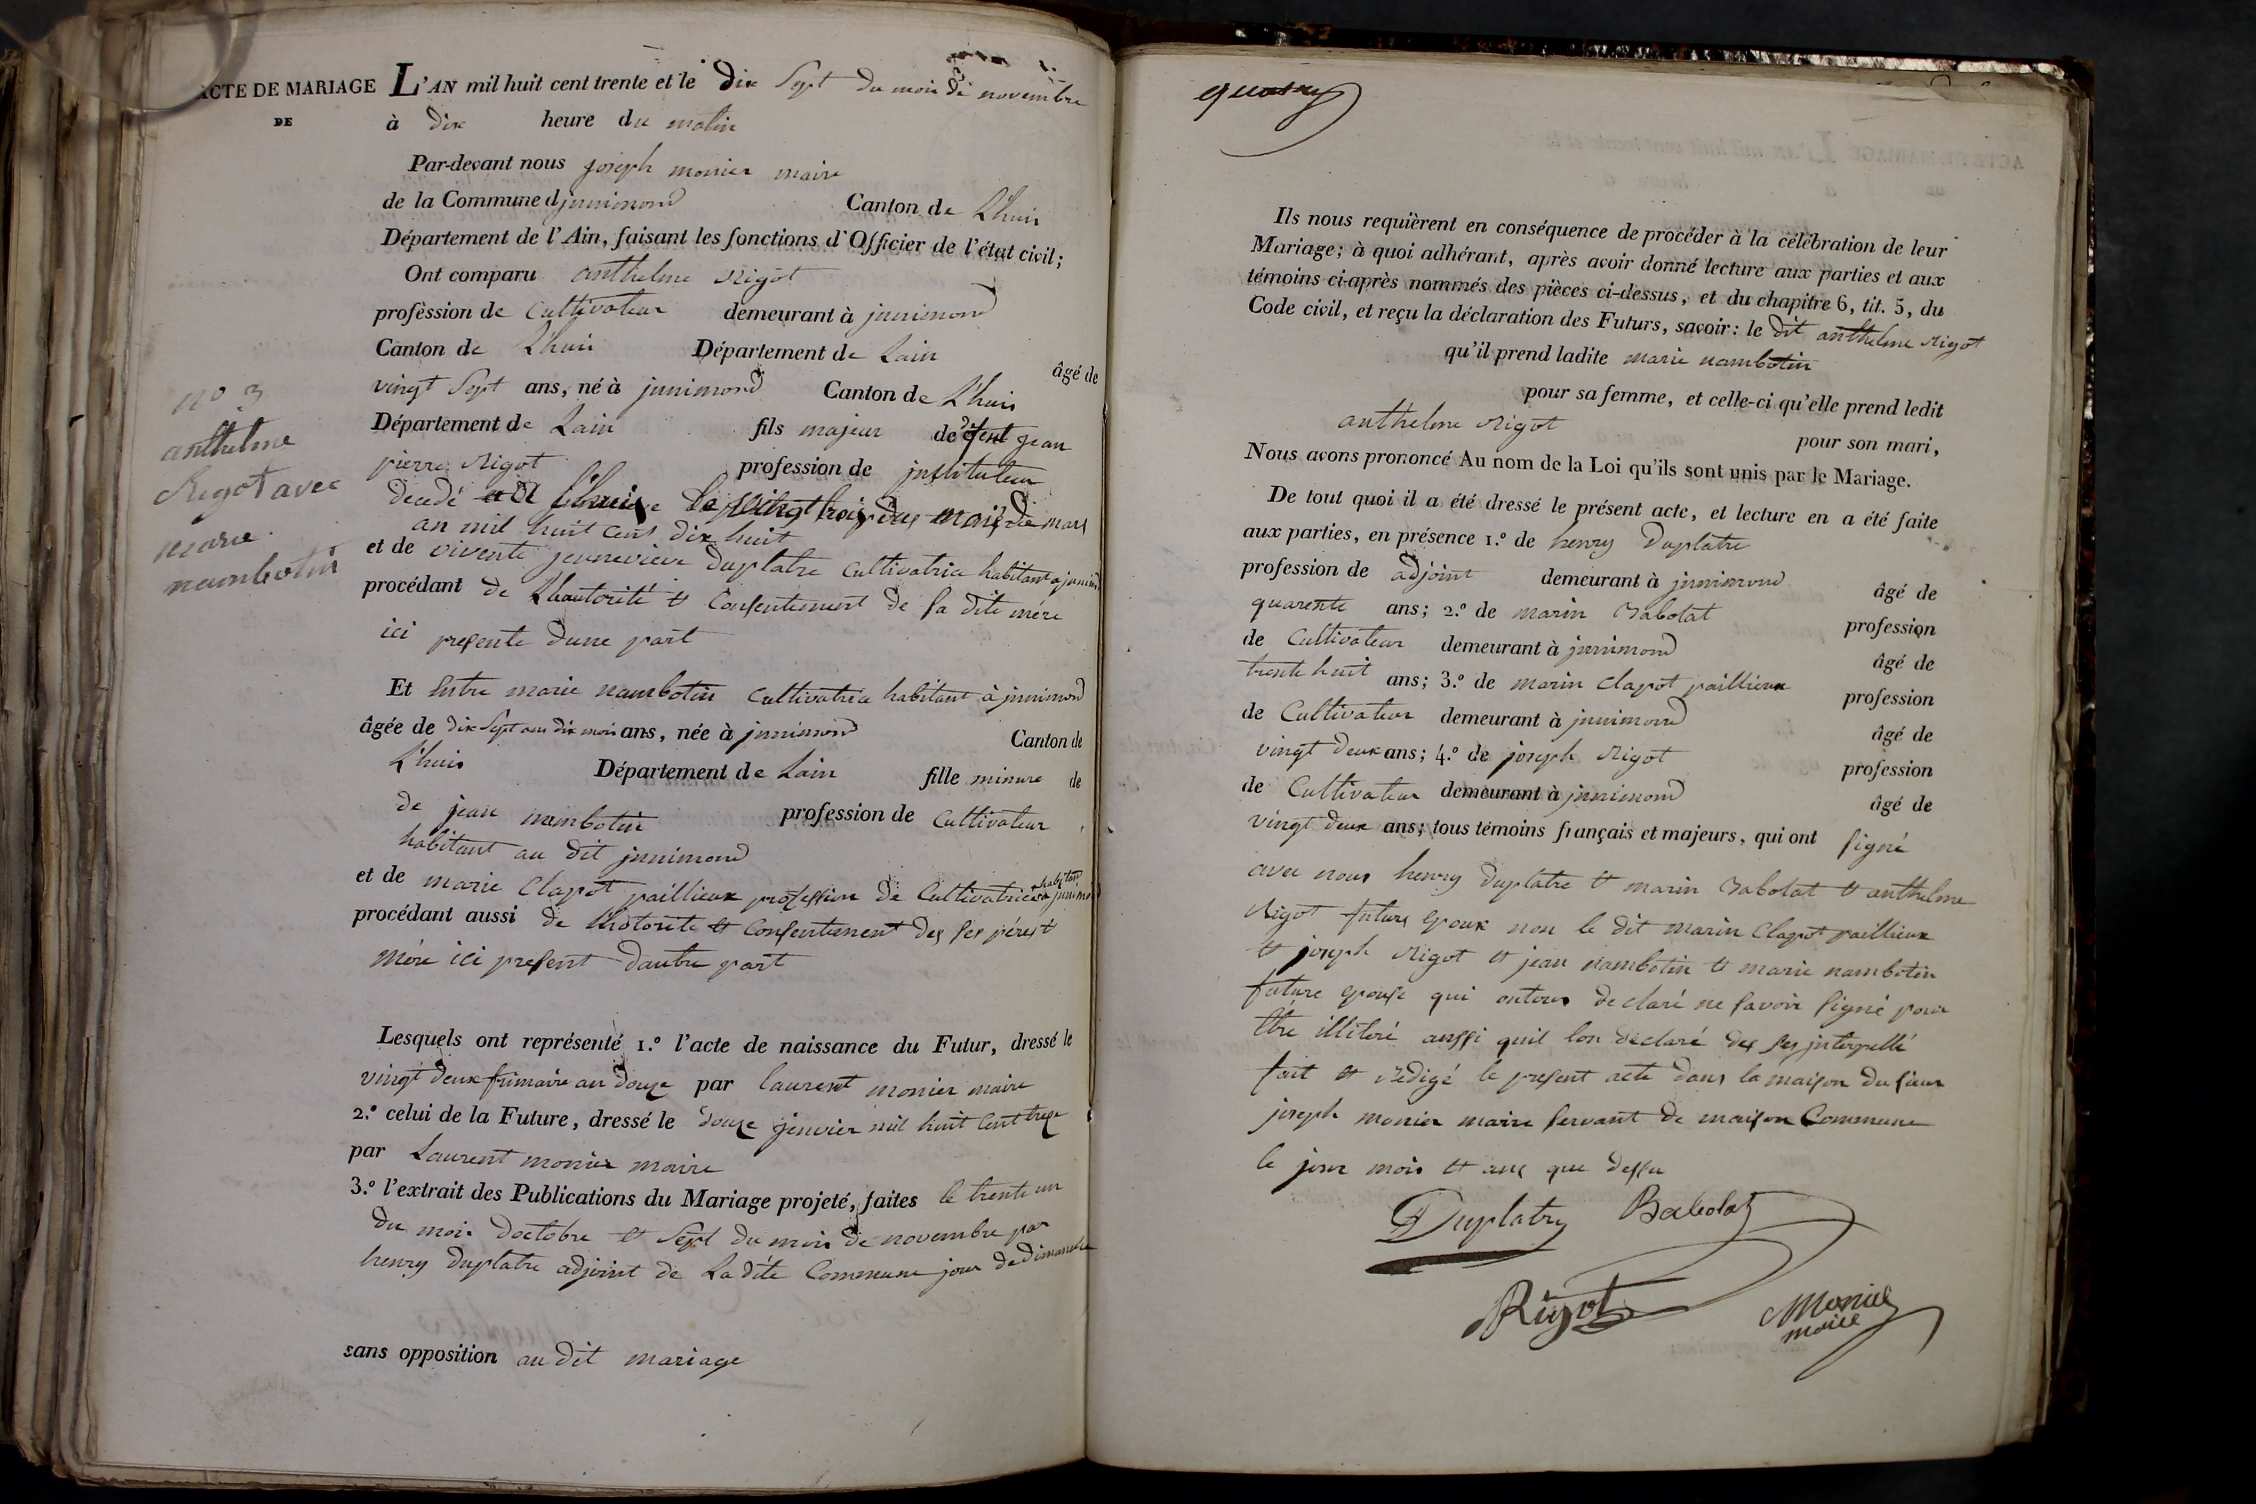 ACTE DE MARIAGE
DE
L'AN mil huit cent trente et le dix Sept du mois de novembre
à dix heure du matin
Par-devant nous joseph monier maire
de la Commune djnnimond Canton de Lhuis
Département de l'Ain, faisant les fonctions d'Officier de l'état civil;
Ont comparu anthelme Rigot
profession de Cultivateur demeurant à jnnimond
Canton de Lhuis Département de Lain âgé de
vingt Sept ans, né à jnnimond Canton de Lhuis
Département de Lain fils majeur de jean
pierre Rigot profession de jnstituteur
decedé Lhuis le vingt trois du mois de mars
an mil huit cent dix huit
et de vivente jeunevieve Duplatre Cultivatrice habitant a
procédant de Lhautorité et Consentement de sa dite mére
ici presente dune part
no 3
anthelme
Rigot avec
marie
nambotin
Et Entre marie nambotin Cultivatrice habitant à jnnimond
âgée de dix Sept ans dix mois ans, née à jnnimond Canton de
Lhuis Département de Lain fille minure de
de jean nambotin profession de Cultivateur
habitant au dit jnnimond
et de marie Clapot paillieux profession de Cultivatrice
procédant aussi de Lhotorité et Consentement des ses pére et
mére ici present dautre part
Lesquels ont représenté 1.º l'acte de naissance du Futur, dressé le
vingt deux frimaire an douze par laurent monier maire
2.º celui de la Future, dressé le douze jenvier mil huit Cent treze
par Laurent monier maire
3.º l'extrait des Publications du Mariage projeté, faites le trente un
du mois doctobre et Sept du mois de novembre par
henry Duplatre adjoint de Ladite Commune jour de dimanche
sans opposition au dit mariage
Ils nous requièrent en conséquence de procéder à la célébration de leur
Mariage; à quoi adhérant, après avoir donné lecture aux parties et aux
témoins ci-après nommés des pièces ci-dessus, et du chapitre 6, tit. 5, du
Code civil, et reçu la déclaration des Futurs, savoir: le dit anthelme Rigot
qu'il prend ladite marie nambotin
pour sa femme, et celle-ci qu'elle prend ledit
anthelme Rigot pour son mari,
Nous avons prononcé Au nom de la Loi qu'ils sont unis par le Mariage.
De tout quoi il a été dressé le présent acte, et lecture en a été faite
aux parties, en présence 1.º de henry Duplatre
profession de adjoint demeurant à jnnimond âgé de
quarente ans; 2.º de marin Babolat profession
de Cultivateur demeurant à jnnimond âgé de
trente huit ans; 3.º de marin Clapot paillieux profession
de Cultivateur demeurant à jnnimond âgé de
vingt deux ans; 4.º de joseph Rigot profession
de Cultivateur demeurant à jnnimond âgé de
vingt deux ans; tous témoins français et majeurs, qui ont signé
avec nous henry Duplatre et marin Babolat et anthelme
Rigot future epoux non le dit marin Clapot paillieux
et joseph Rigot et jean nambotin et marie nambotin
future epouse qui ontous declaré ne savoir signé pour
etre illiteré aussi quil lon declaré des ses jnterpellé
fait et redigé le present acte dans la maison du sieur
joseph monier maire servant de maison Commune
le jour mois et ans que dessu
Duplatre Babolat
Rigot Monier
maire